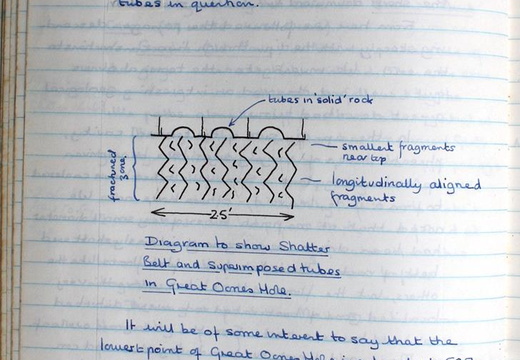 tubes in question.
tubes in 'solid' rock
smallest fragments
near top
fractured
zone
longitudinally aligned
fragments
25'
Diagram to show Shatter
Belt and Superimposed tubes
in Great Oones Hole.
It will be of some interest to say that the
lowest point of Great Oones Hole is